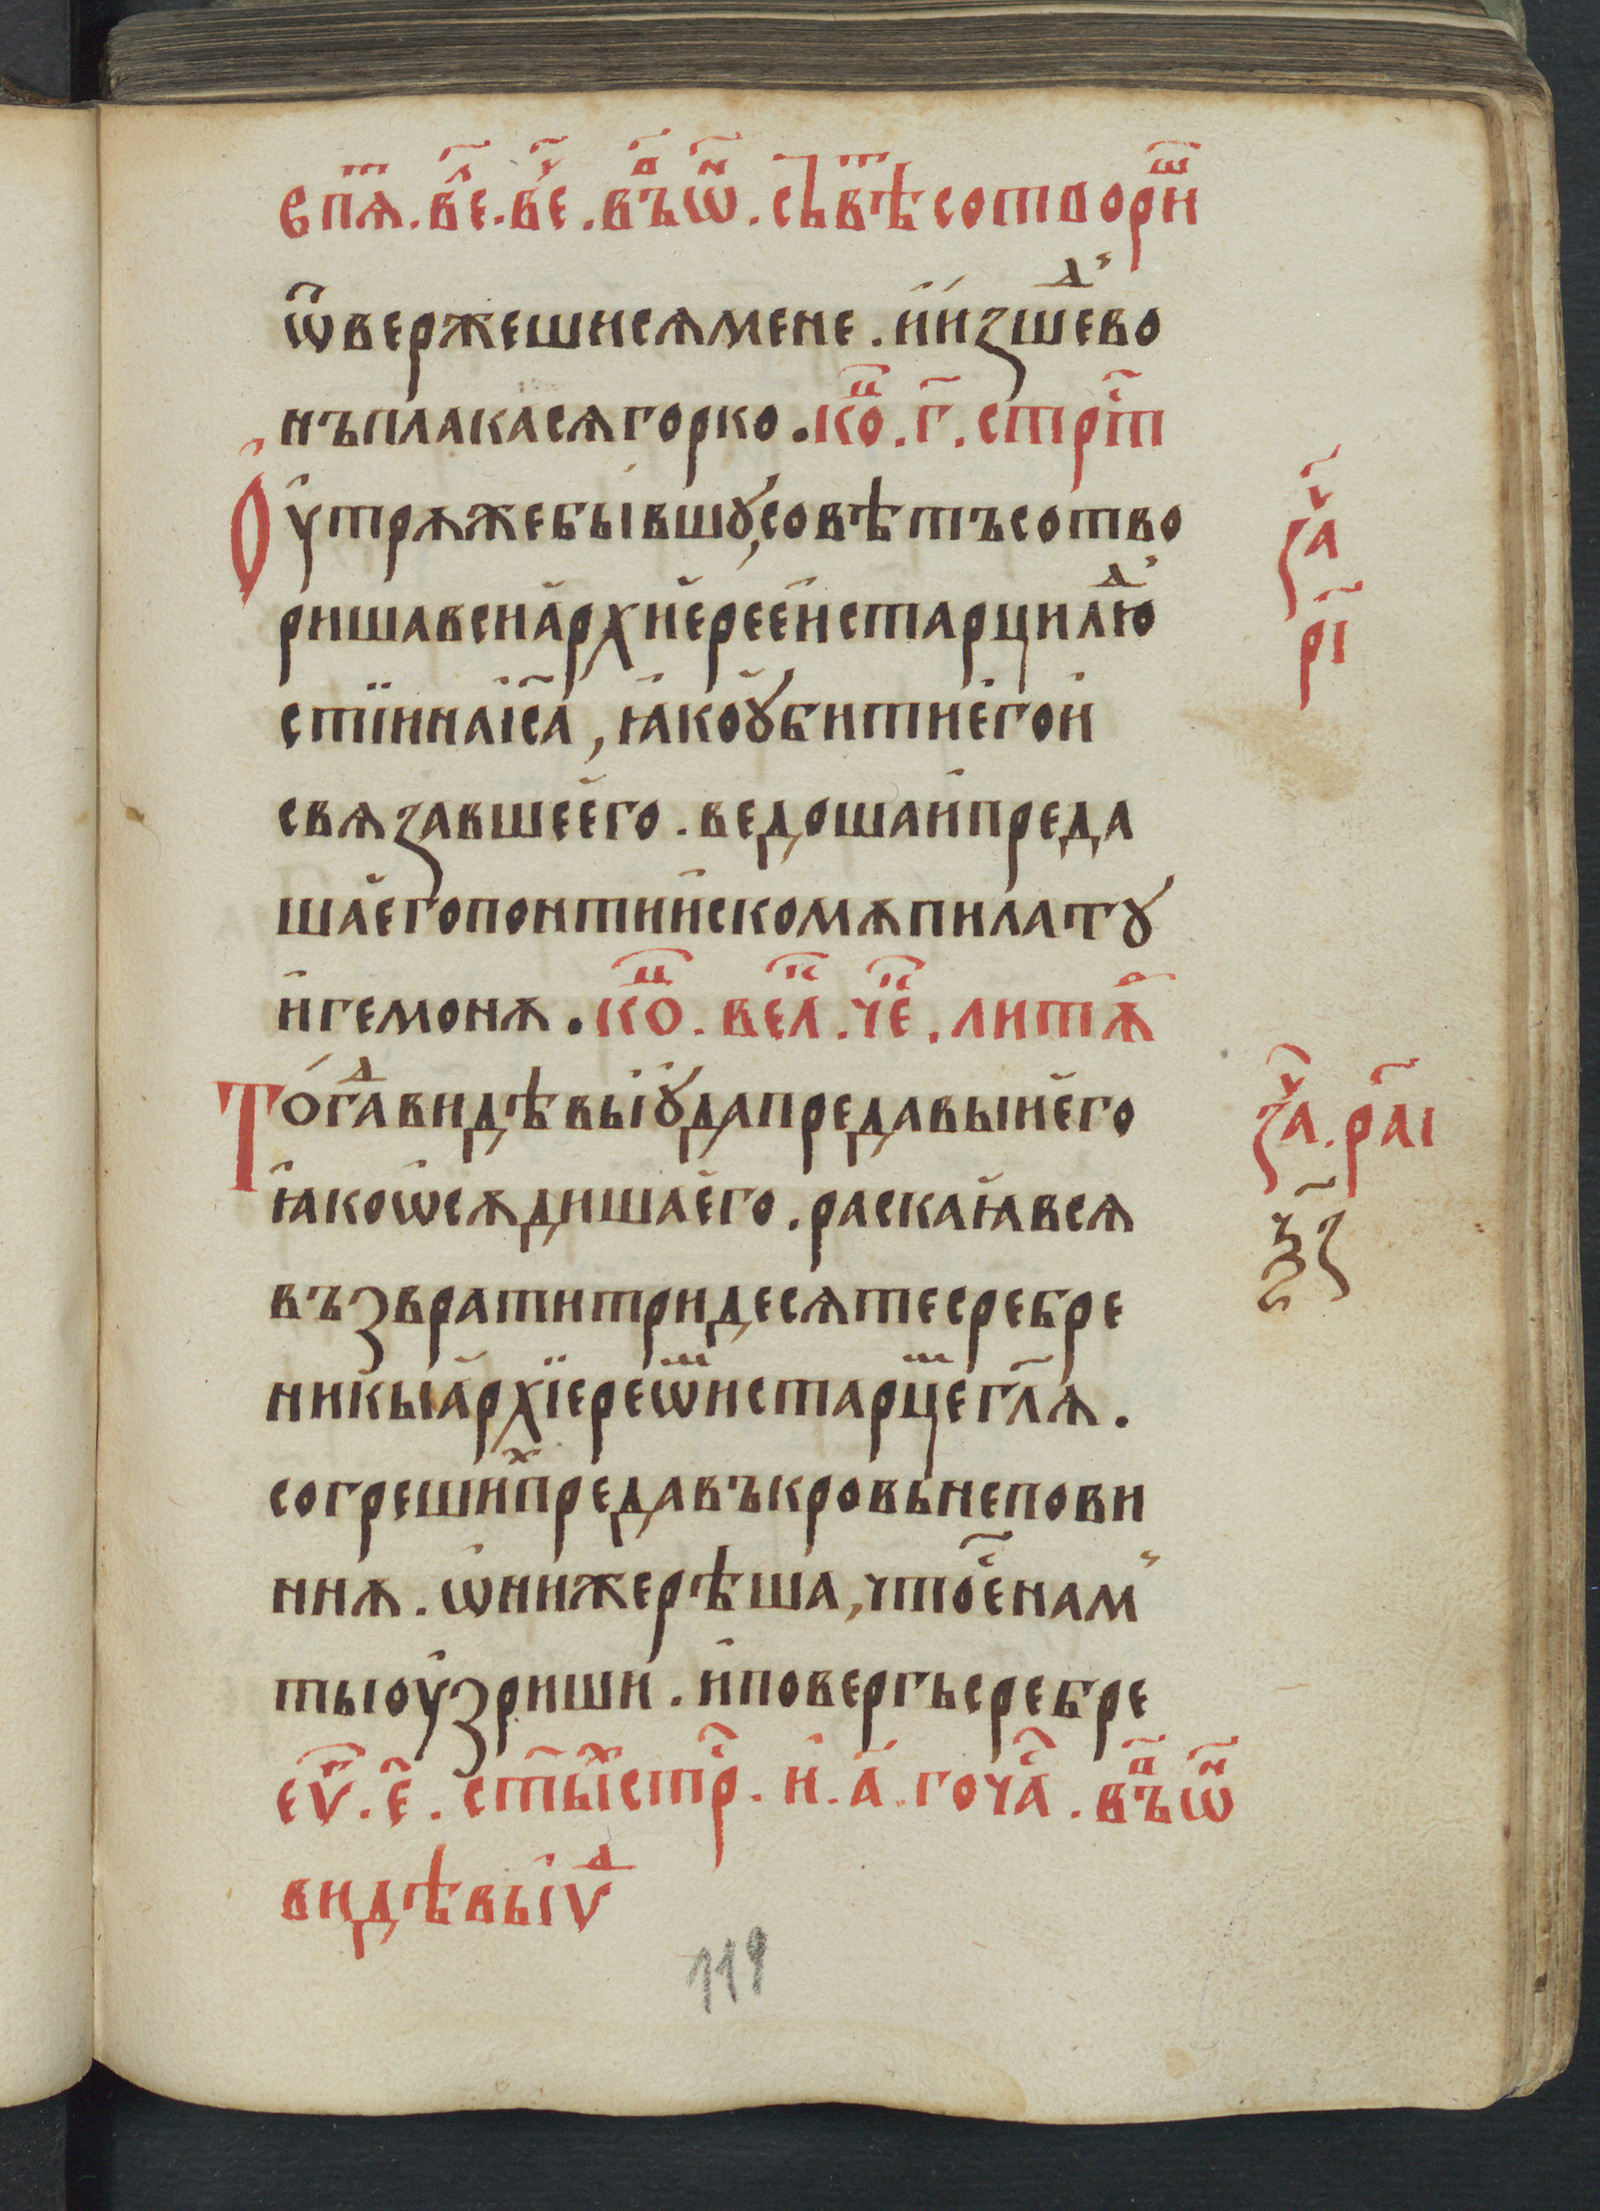 в пⷮѧ. вл҃е. вч҃е. въⷣѡⷩ҇. съвⷮѣ сотворⷲи
ѿвержешисѧ мене. и изшеⷣ во
нъ плакасѧ горко. коⷰ. г҃. стрⷭ҇т
Оутрѧ же бывшꙋ, совѣтъ сотво
риша вси архиерееи старци люⷣ
стїи на і҃са, ꙗко ꙋбити его и
свѧзавше его. ведоша и преда
ша его понтийскомѫ пилатꙋ
игемонѫ. коⷰ. велⷦ. чеⷦ. литѫⷬ
Тогаⷣ видѣвы їꙋда предавыи его
ꙗко ѡсѫдиша его. раскаꙗвсѧ
възврати тридесѧте сребре
никы архїереѡⷨ и старцеⷨ гл҃ѧ.
согрешиⷯ предавъ кровь непови
ннѫ. ѡни же рѣша, что еⷭ҇ нам
ты оузриши. и повергъ сребре
еѵⷢ. е҃. ст҃ыⷯ стрⷭ҇. и. а҃. го чаⷭ҇. въⷣѡⷩ҇
видѣвы іѵⷣ
заⷱ
р҃і
заⷱ. р҃аі
ѯ҃з
119